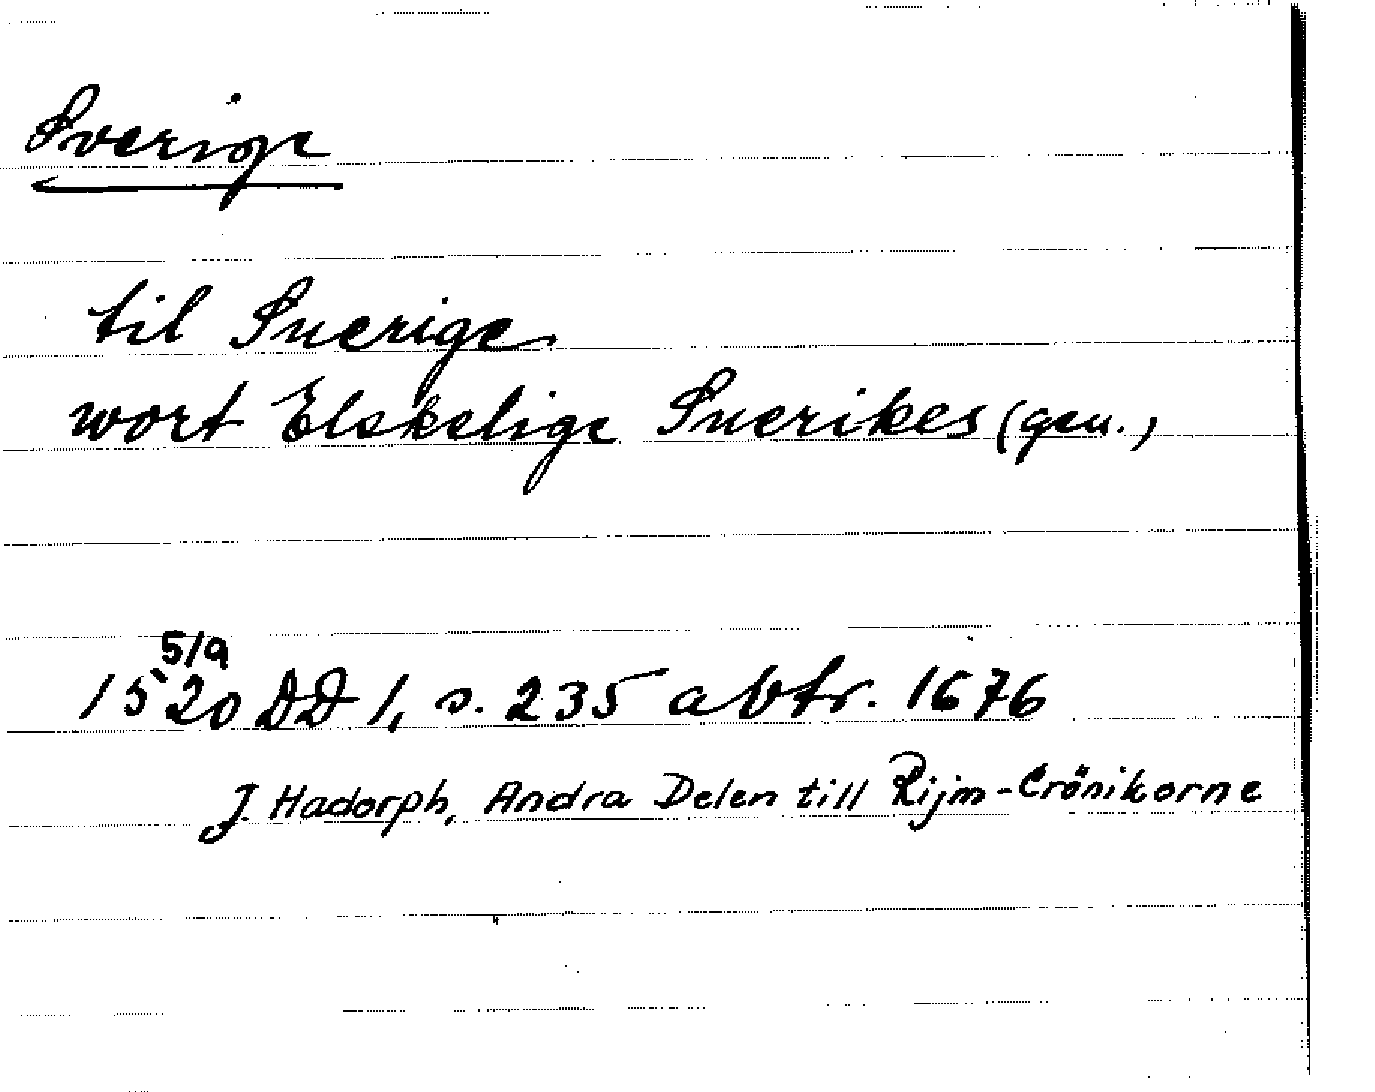 Sverige
til Suerige
wort Elskelige Suerikes (gen.)
5/9
1520 DD 1, s. 235 avtr. 1676
J. Hadorph, Andra Delen till Rijm-Crönikorne